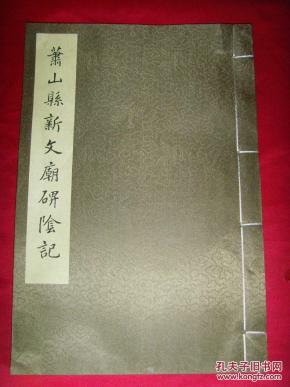 蕭山縣新文廟碑陰記
孔夫子旧书网
www.kongfz.com